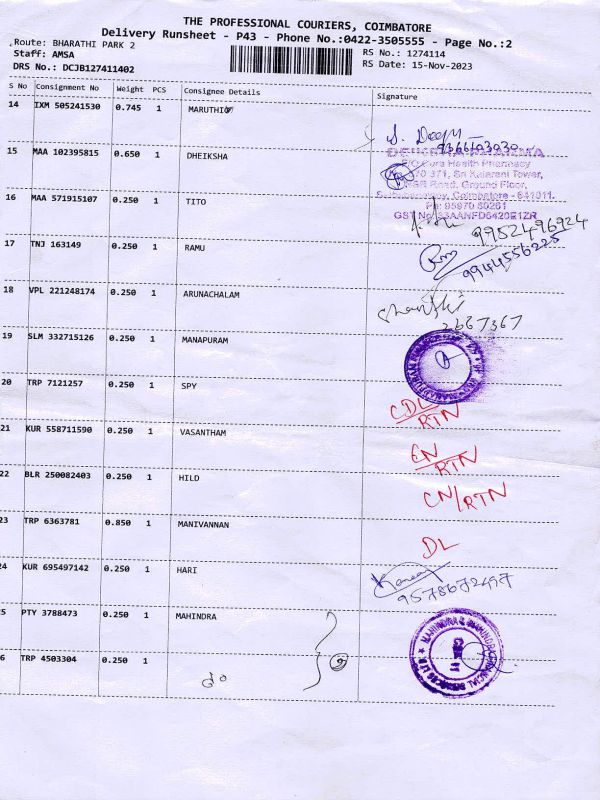 THE PROFESSIONAL COURIERS, COIMBATORE
Delivery Runsheet - P43 - Phone No.:0422-3505555 - Page No.:2
Route: BHARATHI PARK 2
Staff: AMSA
DRS No.: DCJB127411402
RS No.: 1274114
RS Date: 15-Nov-2023
S No Consignment No Weight PCS Consignee Details Signature
14 IXM 505241530 0.745 1 MARUTHI
S. Deepu
9366603030
15 MAA 102395815 0.650 1 DHEIKSHA
PHARMA
Health Pharmacy
371, Sri Kalarani Tower,
Road, Ground Floor,
Coimbatore - 641011.
16 MAA 571915107 0.250 1 TITO
9952496924
17 TNJ 163149 0.250 1 RAMU
9944556225
18 VPL 221248174 0.250 1 ARUNACHALAM
2667367
19 SLM 332715126 0.250 1 MANAPURAM
20 TRP 7121257 0.250 1 SPY
CDL/
RTN
21 KUR 558711590 0.250 1 VASANTHAM
CN
RTN
22 BLR 250082403 0.250 1 HILD
CN/RTN
23 TRP 6363781 0.850 1 MANIVANNAN
DL
24 KUR 695497142 0.250 1 HARI
9578672497
25 PTY 3788473 0.250 1 MAHINDRA
MAHINDRA & MAHINDRA FINANCIAL SERVICES LTD
26 TRP 4503304 0.250 1
do
2